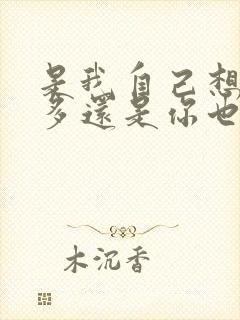 是我自己想
多還是你也
木沉香